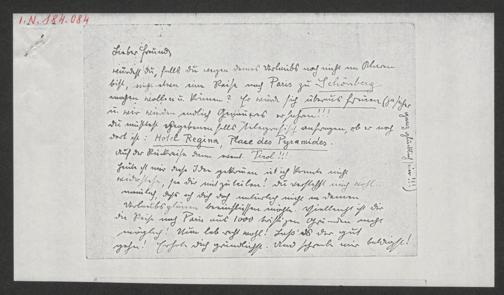 I.N. 184.084
Lieber Freund,
würdest du, falls du wegen deines Urlaubs noch nicht im Klaren
bist, nicht etwa eine Reise nach Paris zu Schönberg
machen wollen u. können? Er würde sich überaus freuen
u. wir würden endlich Genaueres erfahren!!!
Du müsstest gegebenenfalls telegrafisch anfragen, ob er noch
dort ist: Hotel Regina, Place des Pyramides.
Auf der Rückreise dann event. Tirol!!!
Heute ist mir diese Idee gekommen u. ich konnte nicht
widerstehn, sie dir mitzuteilen! Du verstehst mich wohl:
nämlich daß ich dich doch natürlich nicht in deinen
Urlaubsplänen beeinflussen möchte. Vielleicht ist dir
die Reise nach Paris aus 1000 triftigen Gründen nicht
möglich! Nun leb recht wohl! Laß es dir gut
gehn! Erhole dich gründlichst. Und schreib mir baldigst!